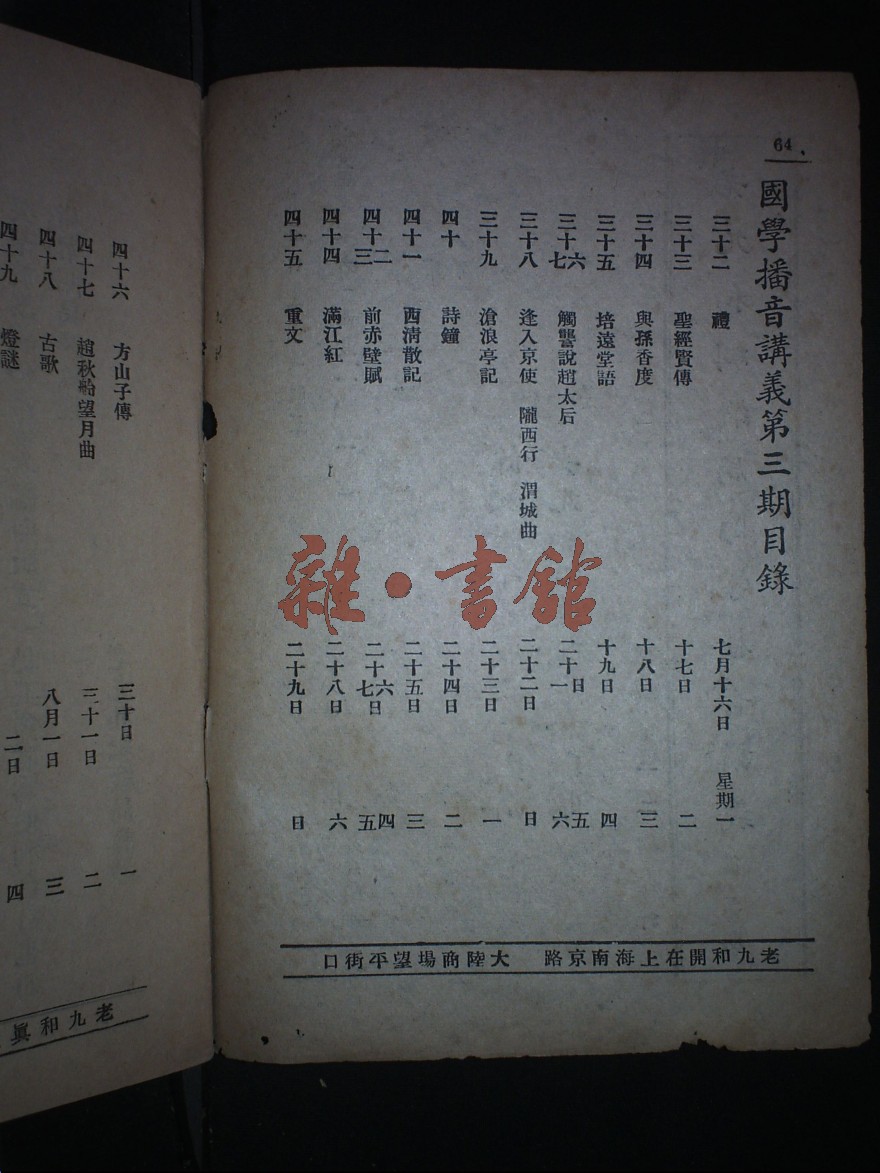 64
國學播音講義第三期目錄
三十二 禮 七月十六日 星期一
三十三 聖經賢傳 十七日 二
三十四 與孫香度 十八日 三
三十五 培遠堂語 十九日 四
三十六七 觸讋說趙太后 二十日二十一 五六
三十八 逢入京使 隴西行 渭城曲 二十二日 日
三十九 滄浪亭記 二十三日 一
四十 詩鐘 二十四日 二
四十一 西清散記 二十五日 三
四十二三 前赤壁賦 二十六七日 四五
四十四 滿江紅 二十八日 六
四十五 重文 二十九日 日
老九和開在上海南京路 大陸商場望平街口
四十六 方山子傳 三十日 一
四十七 趙秋舲望月曲 三十一日 二
四十八 古歌 八月一日 三
四十九 燈謎 二日 四
老九和眞
雜·書館